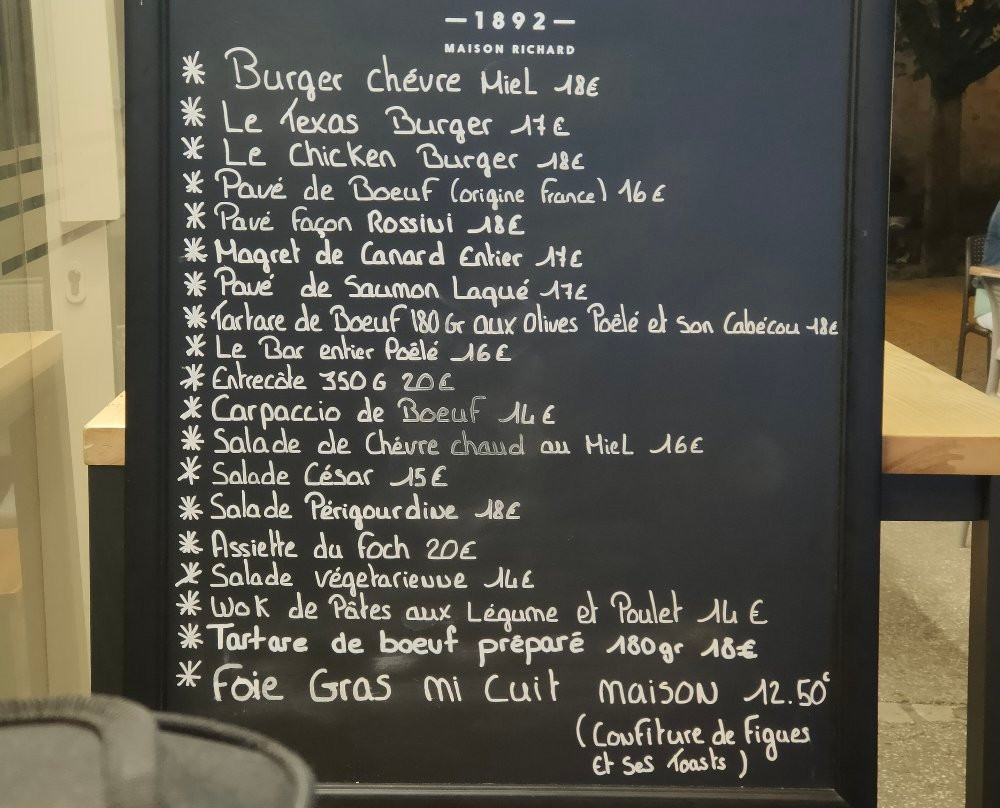 —1892—
MAISON RICHARD
* Burger chévre Miel 18€
* Le Texas Burger 17€
* Le Chicken Burger 18€
* Pavé de Boeuf (origine France) 16€
* Pavé façon Rossini 18€
* Magret de Canard Entier 17€
* Pavé de Saumon Laqué 17€
* Tartare de Boeuf 180Gr aux Olives Poêlé et son Cabécou 18€
* Le Bar entier Poêlé 16€
* Entrecôte 350G 20€
* Carpaccio de Boeuf 14€
* Salade de Chévre chaud au Miel 16€
* Salade César 15€
* Salade Périgourdine 18€
* Assiette du Foch 20€
* Salade végetarienne 14€
* Wok de Pâtes aux Légume et Poulet 14€
* Tartare de boeuf préparé 180gr 18€
* Foie Gras mi cuit maison 12.50€
(Confiture de Figues
Et ses Toasts)